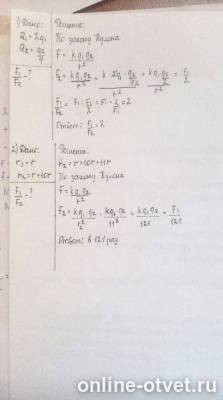 1) Дано:
Q₁ = 2q₁
Q₂ = q₂/4
F₁/F₂ - ?
Решение:
По закону Кулона
F = kq₁q₂/r²
F₂ = kq₁q₂/r² = k·2q₁·q₂/4 / r² = kq₁q₂/2 / r² = F₁/2
F₁/F₂ = F₁ : F₁/2 = F₁ · 2/F₁ = 2
Ответ: F₁/F₂ = 2
2) Дано:
r₁ = r
r₂ = r+10r
F₁/F₂ - ?
Решение:
r₂ = r+10r = 11r
По закону Кулона
F = kq₁q₂/r²
F₂ = kq₁q₂/r² = kq₁q₂/11² = kq₁q₂/121 = F₁/121
Ответ: в 121 раз.
online-otvet.ru